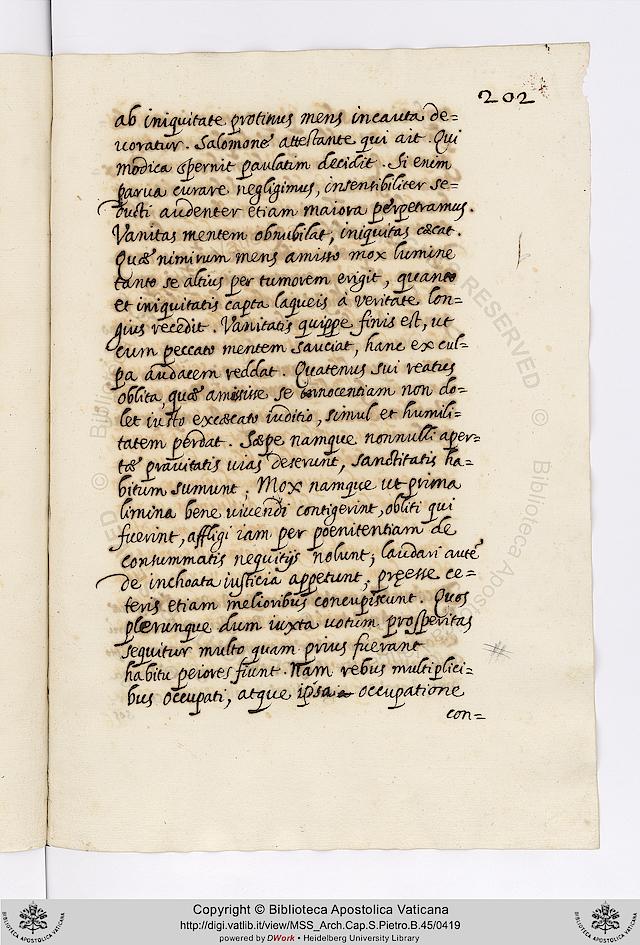 202
ab iniquitate protinus mens incauta de=
uoratur. Salomone attestante qui ait. Qui
modica spernit paulatim decidit. Si enim
parua curare negligimus, insensibiliter se=
ducti audenter etiam maiora perpetramus.
Vanitas mentem obnubilat, iniquitas cæcat.
Quæ nimirum mens amisso mox lumine
tanto se altius per tumorem erigit, quanto
et iniquitatis capta laqueis à veritate lon=
gius recedit. Vanitatis quippe finis est, ut
cum peccato mentem sauciat, hanc ex cul=
pa audacem reddat. Quatenus sui reatus
oblita, quæ amisise se innocentiam non do=
let iusto excæcato iuditio, simul et humili=
tatem perdat. Sæpe namque nonnulli aper=
tæ prauitatis uias deserunt, sanctitatis ha=
bitum sumunt; Mox namque ut prima
limina bene uiuendi contigerint, obliti qui
fuerint, affligi iam per poenitentiam de
consummatis nequitijs nolunt; laudari autē
de inchoata iusticia appetunt, pręesse ce=
teris etiam melioribus concupiscunt. Quos
plerunque dum iuxta uotum prosperitas
sequitur multo quam prius fuerant
habitu peiores fiunt. Nam rebus multiplici=
bus occupati, atque ipsa occupatione
con=
RESERVED © Biblioteca Apostolica
Copyright © Biblioteca Apostolica Vaticana
http://digi.vatlib.it/view/MSS_Arch.Cap.S.Pietro.B.45/0419
powered by DWork • Heidelberg University Library